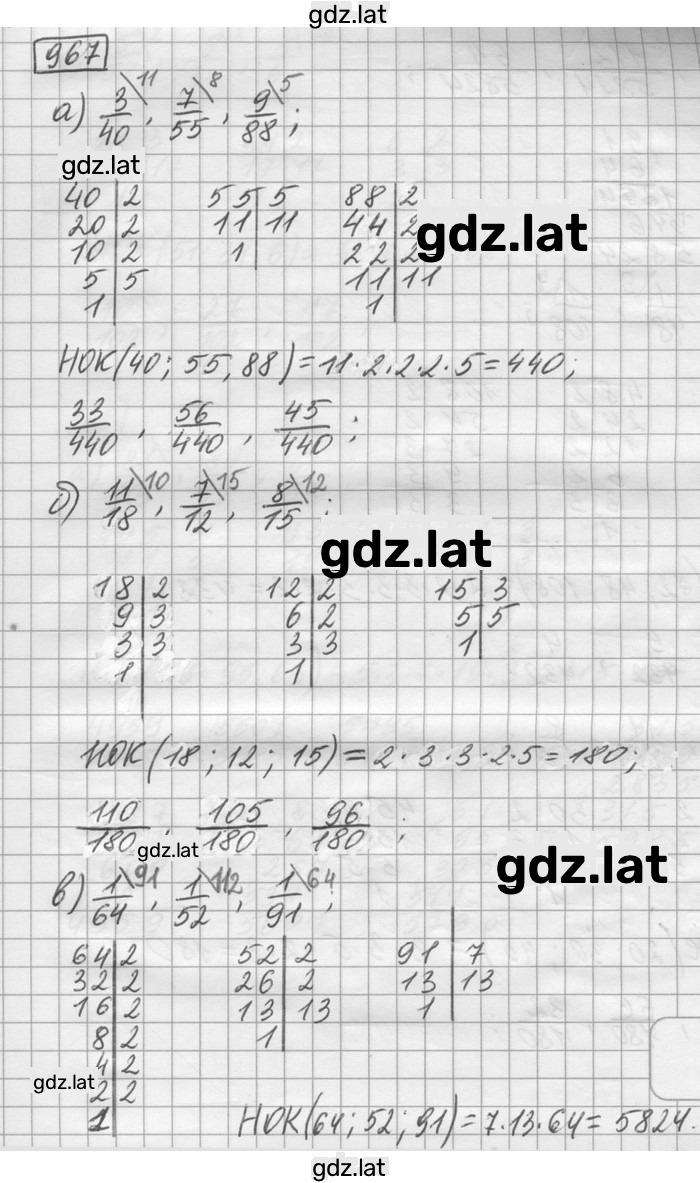 gdz.lat
967
а) 3/40 \11, 7/55 \8, 9/88 \5;
gdz.lat
40 | 2   55 | 5   88 | 2
20 | 2   11 | 11   44 | 2 gdz.lat
10 | 2   1 |   22 | 2
5 | 5   11 | 11
1 |   1 |
НОК(40; 55, 88) = 11·2·2·2·5 = 440;
33/440, 56/440, 45/440;
б) 11/18 \10, 7/12 \15, 8/15 \12;
gdz.lat
18 | 2   12 | 2   15 | 3
9 | 3   6 | 2   5 | 5
3 | 3   3 | 3   1 |
1 |   1 |
НОК(18; 12; 15) = 2·3·3·2·5 = 180;
110/180, 105/180, 96/180;
gdz.lat
gdz.lat
в) 1/64 \91, 1/52 \112, 1/91 \64;
64 | 2   52 | 2   91 | 7
32 | 2   26 | 2   13 | 13
16 | 2   13 | 13   1 |
8 | 2   1 |
4 | 2
gdz.lat
2 | 2
1 |
НОК(64; 52; 91) = 7·13·64 = 5824.
gdz.lat